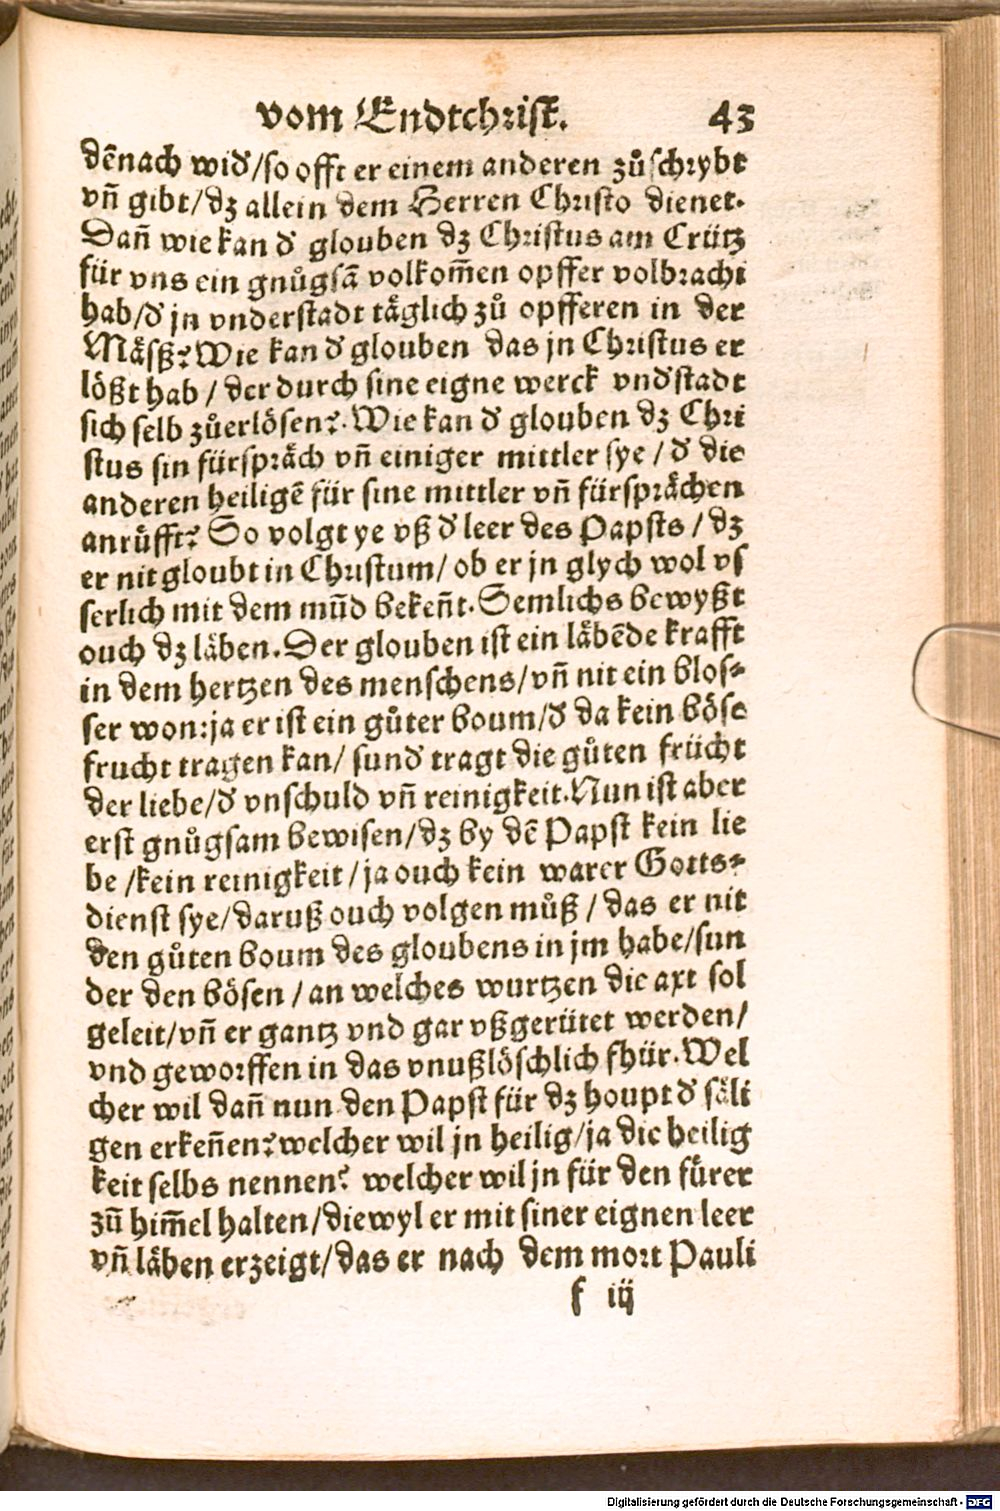 vom Endtchrist. 43
dēnach wiđ/so offt er einem anderen zůschrybt
vñ gibt/dz allein dem Herren Christo dienet.
Dañ wie kan đ glouben dz Christus am Crütz
für vns ein gnůgsā volkom̄en opffer volbracht
hab/đ jn vnderstadt täglich zů opfferen in der
Mäſß? Wie kan đ glouben das jn Christus er
lößt hab / der durch sine eigne werck vnđstadt
sich selb zůerlösen?. Wie kan đ glouben dz Chri
stus sin fürspräch vñ einiger mittler sye / đ die
anderen heiligē für sine mittler vñ fürsprächen
anrůfft? So volgt ye vß đ leer des Papsts / dz
er nit gloubt in Christum/ ob er jn glych wol vs
serlich mit dem mūd bekeñt. Semlichs bewyßt
ouch dz läben. Der glouben ist ein läbēde krafft
in dem hertzen des menschens/vñ nit ein blos⸗
ser won:ja er ist ein gůter boum/đ da kein böse
frucht tragen kan/ sunđ tragt die gůten frücht
der liebe/đ vnschuld vñ reinigkeit. Nun ist aber
erst gnůgsam bewisen/dz by dē Papst kein lie
be /kein reinigkeit / ja ouch kein warer Gotts⸗
dienst sye/daruß ouch volgen můß / das er nit
den gůten boum des gloubens in jm habe/sun
der den bösen / an welches wurtzen die axt sol
geleit/vñ er gantz vnd gar vßgerütet werden/
vnd geworffen in das vnußlöschlich fhür. Wel
cher wil dañ nun den Papst für dz houpt đ säli
gen erkeñen? welcher wil jn heilig/ja die heilig
keit selbs nennen? welcher wil jn für den fürer
zū him̄el halten/diewyl er mit siner eignen leer
vñ läben erzeigt/das er nach dem wort Pauli
f iij
Digitalisierung gefördert durch die Deutsche Forschungsgemeinschaft - DFG